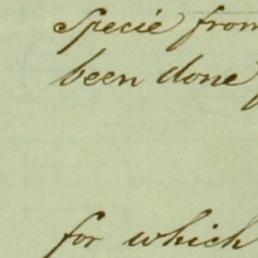 Specie from
been done
for which